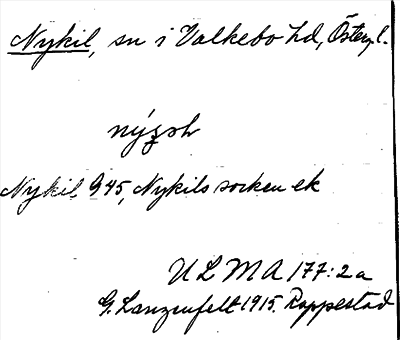 Nykil, sn i Valkebo hd, Österg.l.
Nykil 945, Nykils socken ek
ULMA 177:2a
G. Lanzenfelt 1915. Rappestad